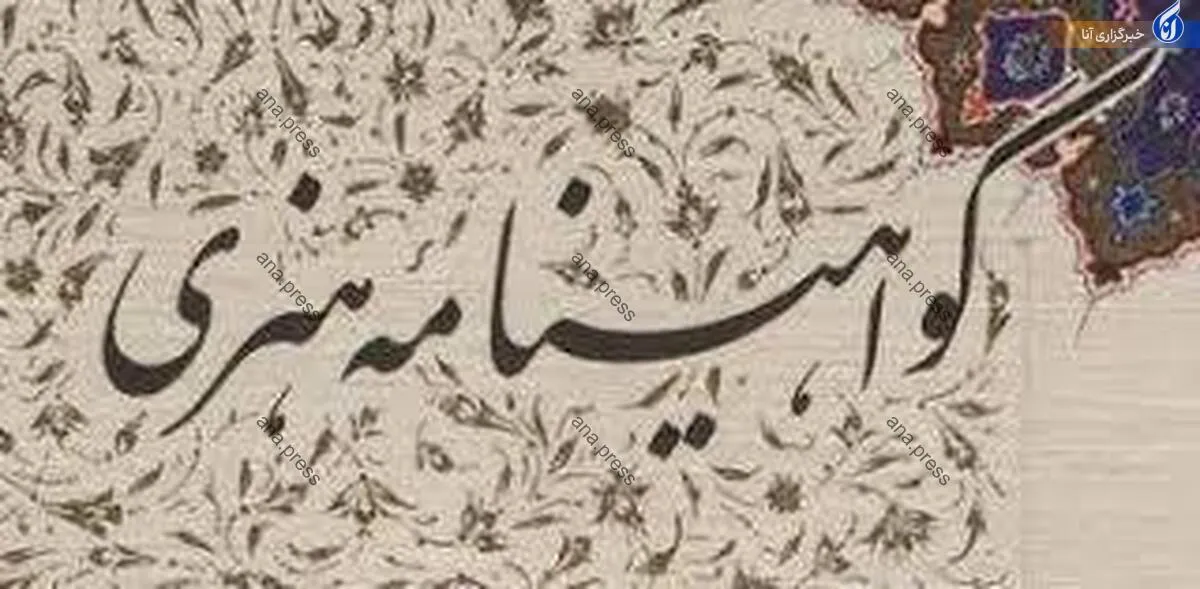 خبرگزاری آنا
گواهینامه هنری
ana.press ana.press ana.press
ana.press ana.press ana.press
ana.press ana.press ana.press